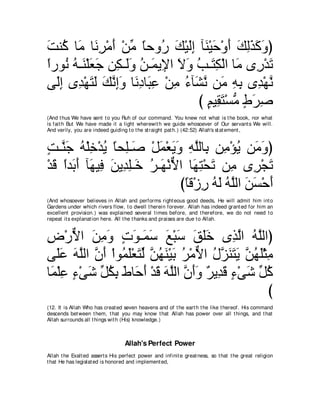 (وَكَذَلِكَ أَوْحَيْنَآ إِلَيْكَ رُوحاً مِّنْ أَمْرِنَا مَا كُنتَ
تَدْرِى مَا الْكِتَـبُ وَلاَ الإِيمَـنُ وَلَـكِن جَعَلْنَـهُ نُوراً
نَّهْدِى بِهِ مَن نَّشَآءُ مِنْ عِبَادِنَا وَإِنَّكَ لَتَهْدِى إِلَى
صِرَطٍ مُّسْتَقِيمٍ )
(And thus We have sent to you Ruh of our command. You knew not what is the book, nor what
is faith But We have made it a light wherewith we guide whosoever of Our servants We will.
And verily, you are indeed guiding to the straight path.) (42:52) Allah's statement,
(وَمَن يُؤْمِن بِاللَّهِ وَيَعْمَلْ صَـلِحاً يُدْخِلْهُ جَنَّـتٍ
تَجْرِى مِن تَحْتِهَا الأَنْهَـرُ خَـلِدِينَ فِيهَآ أَبَداً قَدْ
أَحْسَنَ اللَّهُ لَهُ رِزْقاً)
(And whosoever believes in Allah and performs righteous good deeds, He will admit him into
Gardens under which rivers flow, to dwell therein forever. Allah has indeed granted for him an
excellent provision.) was explained several times before, and therefore, we do not need to
repeat its explanation here. All the thanks and praises are due to Allah.
(اللَّهُ الَّذِى خَلَقَ سَبْعَ سَمَـوَتٍ وَمِنَ الأَرْضِ
مِثْلَهُنَّ يَتَنَزَّلُ الأَمْرُ بَيْنَهُنَّ لِّتَعْلَمُواْ أَنَّ اللَّهَ عَلَى
كُلِّ شَىْءٍ قَدِيرٌ وَأَنَّ اللَّهَ قَدْ أَحَاطَ بِكُلِّ شَىْءٍ عِلْمَا
)
(12. It is Allah Who has created seven heavens and of the earth the like thereof. His command
descends between them, that you may know that Allah has power over all things, and that
Allah surrounds all things with (His) knowledge.)
Allah's Perfect Power
Allah the Exalted asserts His perfect power and infinite greatness, so that the great religion
that He has legislated is honored and implemented,